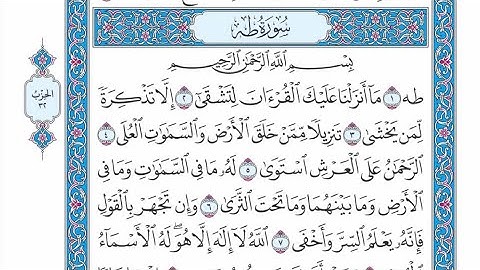 سُورَةُ طه
بِسْمِ ٱللَّهِ ٱلرَّحْمَٰنِ ٱلرَّحِيمِ
طه ١ مَآ أَنزَلْنَا عَلَيْكَ ٱلْقُرْءَانَ لِتَشْقَىٰٓ ٢ إِلَّا تَذْكِرَةً
لِّمَن يَخْشَىٰ ٣ تَنزِيلًا مِّمَّنْ خَلَقَ ٱلْأَرْضَ وَٱلسَّمَٰوَٰتِ ٱلْعُلَى ٤
ٱلرَّحْمَٰنُ عَلَى ٱلْعَرْشِ ٱسْتَوَىٰ ٥ لَهُۥ مَا فِى ٱلسَّمَٰوَٰتِ وَمَا فِى
ٱلْأَرْضِ وَمَا بَيْنَهُمَا وَمَا تَحْتَ ٱلثَّرَىٰ ٦ وَإِن تَجْهَرْ بِٱلْقَوْلِ
فَإِنَّهُۥ يَعْلَمُ ٱلسِّرَّ وَأَخْفَى ٧ ٱللَّهُ لَآ إِلَٰهَ إِلَّا هُوَ ۖ لَهُ ٱلْأَسْمَآءُ
الحِزْبُ
٣٢